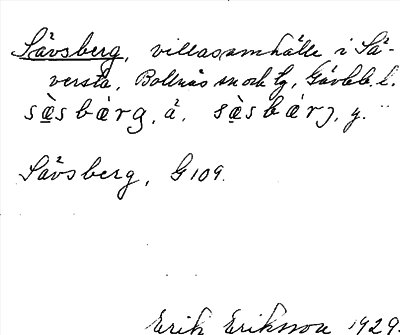 Sävsberg, villasamhälle i Sä-
versta, Bollnäs sn och lg, Gävleb. l.
sɛ̀sbárg, ä. sɛ̀sbárj, y.
Sävsberg, G 109.
Erik Eriksson 1929.